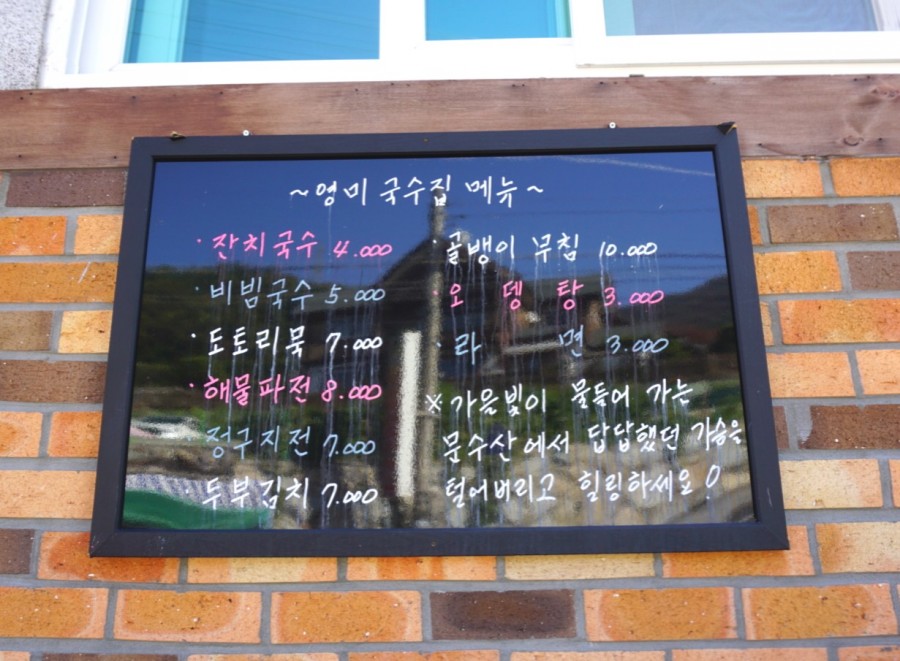 ~영미 국수집 메뉴~
· 잔치국수 4.000
· 비빔국수 5.000
· 도토리묵 7.000
· 해물파전 8.000
· 정구지전 7.000
· 두부김치 7.000
· 골뱅이 무침 10.000
· 오 뎅 탕 3.000
· 라 면 3.000
※ 가을빛이 물들어 가는
문수산에서 답답했던 가슴을
털어버리고 힐링하세요!